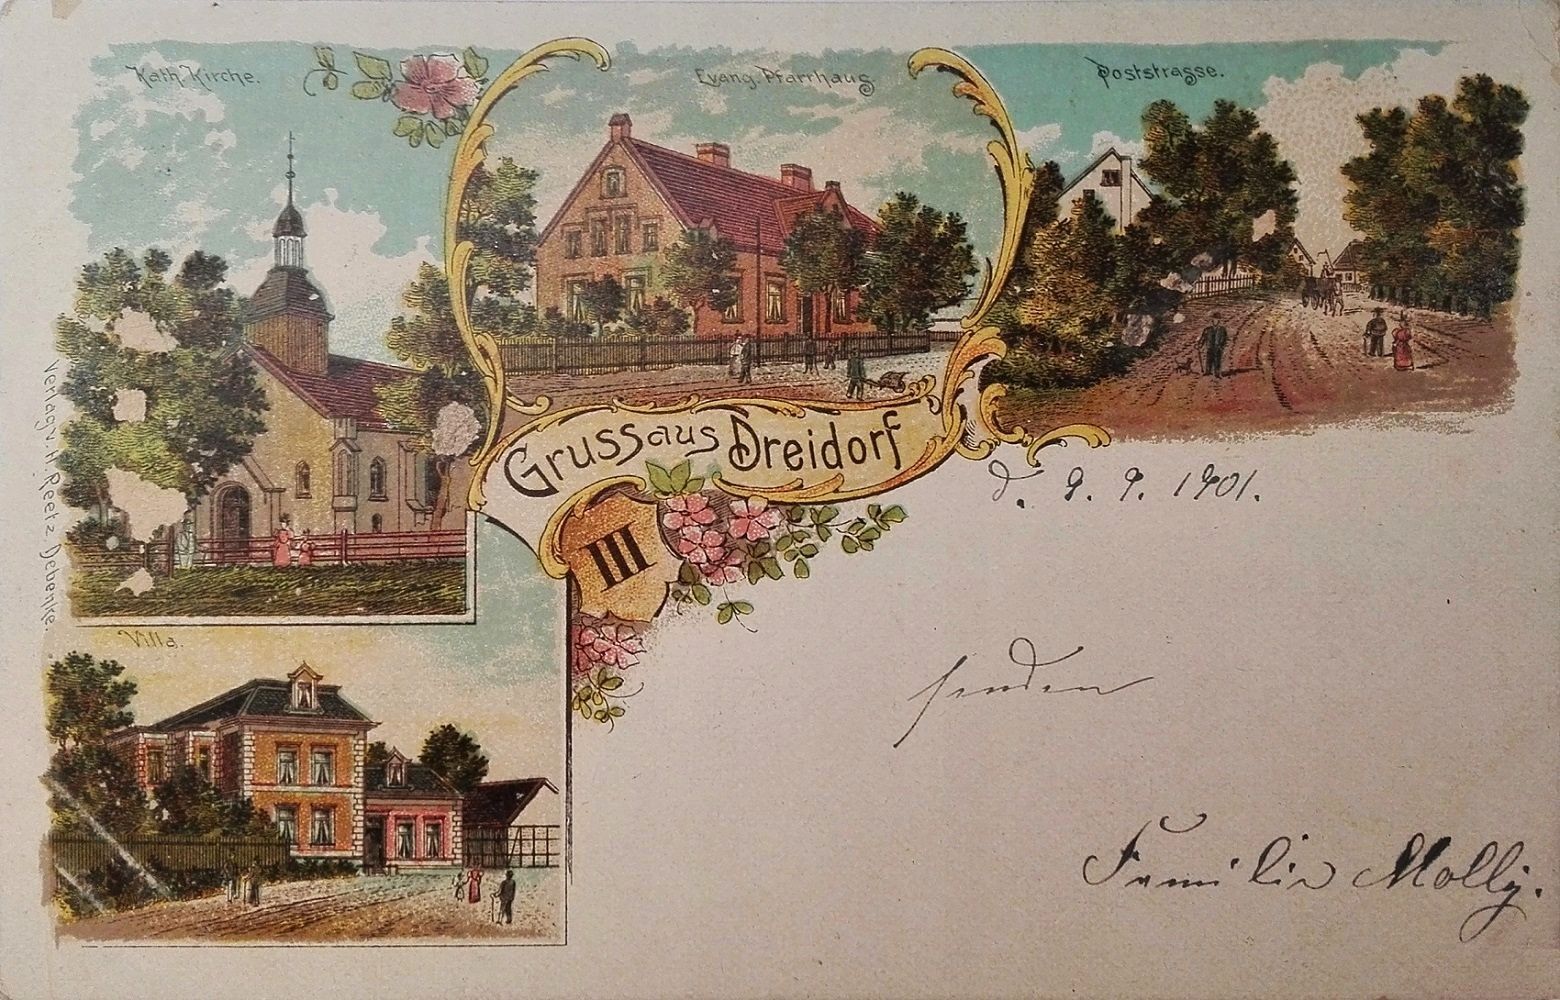 Kath. Kirche.
Evang. Pfarrhaus
Poststrasse.
Gruss aus Dreidorf
III
d. 9. 9. 1901.
Verlag v. H. Reetz Debenke.
Villa.
senden
Familie Molly.